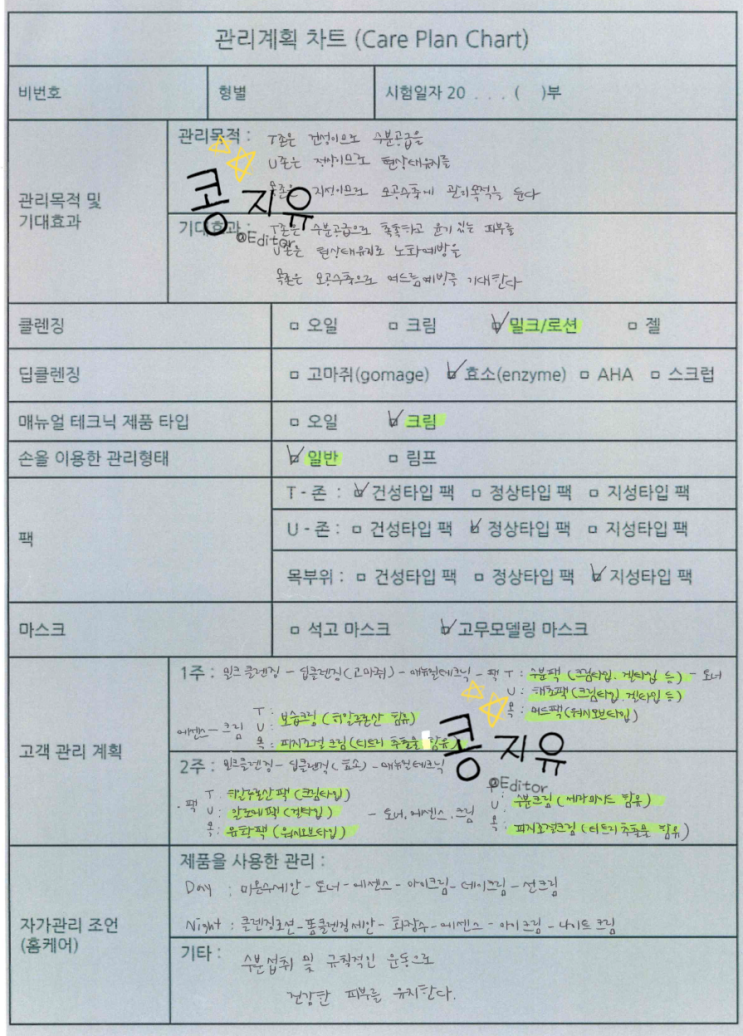 관리계획 차트 (Care Plan Chart)
비번호 형별 시험일자 20 . . . ( )부
관리목적 및 기대효과
관리목적 : T존은 건성이므로 수분공급을
U존은 정상이므로 현상태유지를
목존은 지성이므로 모공수축에 관리목적을 둔다
콩지유
@Editor
기대효과 : T존은 수분공급으로 촉촉하고 윤기 있는 피부를
U존은 현상태유지로 노화예방을
목존은 모공수축으로 여드름예방을 기대한다
클렌징 □ 오일 □ 크림 ☑ 밀크/로션 □ 젤
딥클렌징 □ 고마쥐(gomage) ☑ 효소(enzyme) □ AHA □ 스크럽
매뉴얼 테크닉 제품 타입 □ 오일 ☑ 크림
손을 이용한 관리형태 ☑ 일반 □ 림프
팩
T - 존 : ☑ 건성타입 팩 □ 정상타입 팩 □ 지성타입 팩
U - 존 : □ 건성타입 팩 ☑ 정상타입 팩 □ 지성타입 팩
목부위 : □ 건성타입 팩 □ 정상타입 팩 ☑ 지성타입 팩
마스크 □ 석고 마스크 ☑ 고무모델링 마스크
고객 관리 계획
1주 : 밀크클렌징 - 딥클렌징(고마쥐) - 매뉴얼테크닉 - 팩 T : 수분팩 (크림타입, 겔타입 등) - 토너
U : 해초팩 (크림타입, 겔타입 등)
목 : 머드팩 (워시오브타입)
에센스 - 크림 T : 보습크림 (히알루론산 함유)
U :
목 : 피지조절 크림 (티트리 추출물 함유)
콩지유
@Editor
2주 : 밀크클렌징 - 딥클렌징(효소) - 매뉴얼테크닉
- 팩 T : 히알루론산 팩 (크림타입)
U : 알로에 팩 (겔타입) - 토너, 에센스, 크림 U : 수분크림 (세라마이드 함유)
목 : 유황팩 (워시오브타입) 목 : 피지조절크림 (티트리추출물 함유)
자가관리 조언 (홈케어)
제품을 사용한 관리 :
Day : 미온수세안 - 토너 - 에센스 - 아이크림 - 데이크림 - 선크림
Night : 클렌징로션 - 폼클렌징세안 - 화장수 - 에센스 - 아이크림 - 나이트 크림
기타 : 수분섭취 및 규칙적인 운동으로
건강한 피부를 유지한다.